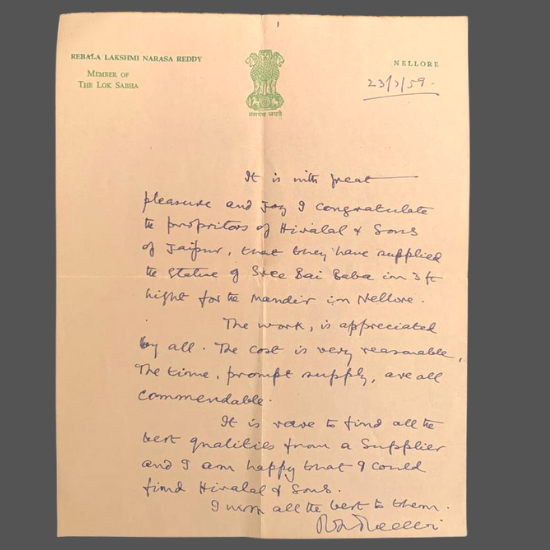 REBALA LAKSHMI NARASA REDDY
MEMBER OF
THE LOK SABHA
सत्यमेव जयते
NELLORE
23/2/59.
It is with great
pleasure and Joy I congratulate
the propritors of Hiralal & Sons
of Jaipur, that they have supplied
the Statue of Sree Sai Baba in 3 ft
hight for the Mandir in Nellore.
The work, is appreciated
by all. The cost is very reasonable,
The time, prompt supply, are all
commendable.
It is rare to find all the
best qualities from a Supplier
and I am happy that I could
find Hiralal & Sons.
I wish all the best to them.